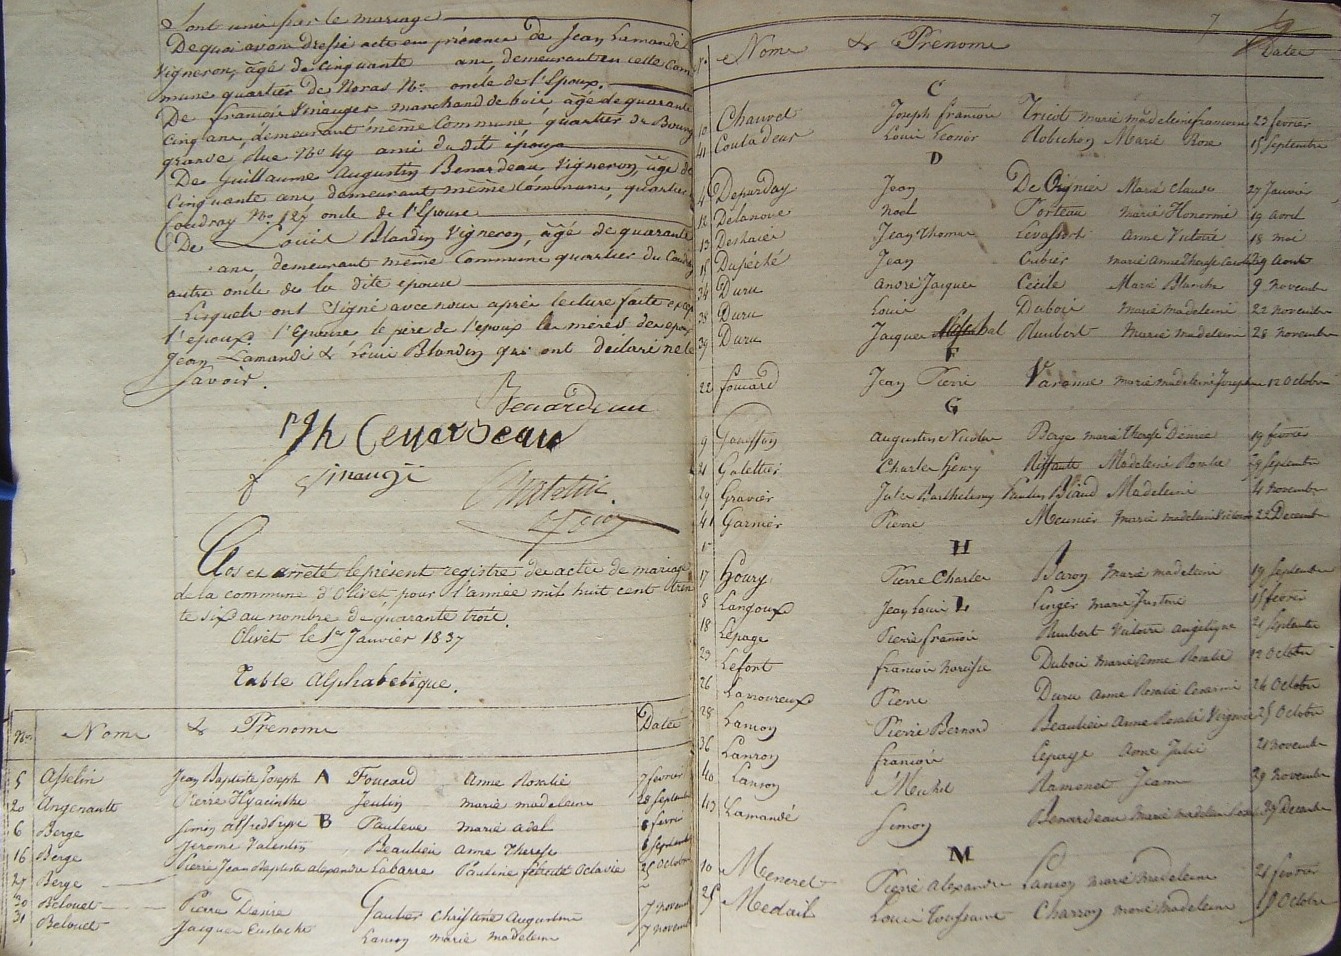 Sont unis par le mariage
De quoi avons dressé acte en présence de Jean Lamandé
Vigneron, âgé de cinquante ans demeurant en cette Com
mune quartier de Noras No. oncle de l'Epoux.
De françois Vinauger marchand de bois âgé de quarante
Cinq ans, demeurant même Commune, quartier du Bourg
grande Rue No 49 ami du dit époux
De Guillaume Augustin Benardeau, Vigneron, âgé de
Cinquante ans, demeurant même commune, quartier
Coudray No. 127 oncle de l'Epouse
De Louis Blandin Vigneron, âgé de quarante
ans, demeurant même Commune quartier du Coudray
autre oncle de la dite epouse
Lesquels ont signé avec nous après lecture faite excepté
l'epoux, l'Epouse, le père de l'epoux les mères des epoux
Jean Lamandé & Louis Blandin qui ont déclaré ne le
Savoir.
Benardeau
f Vinauger
Clos et arrêté le présent registre des actes de mariage
de la commune d'Olivet pour l'année mil huit cent tren
te six au nombre de quarante trois.
Olivet le 1er Janvier 1837
Table Alphabétique.
Nos Noms & Prénoms Dates
A
5 Asselin Jean Baptiste Joseph Foucard Anne Rosalie 7 février
20 Angenault Pierre Hyacinthe Jeulin marie madeleine 28 septembre
B
6 Berge Simon alfred Pauleve marie adel 8 fevrier
16 Berge Jerome Valentin Beaulieu Anne Therese 6 septembre
27 Berge Pierre Jean Baptiste alexandre Labarre Pauline félicité Octavie 25 Octobre
30 Belouet Pierre Desiré Gautier Christine Augustine 7 novembre
31 Belouet Jacques Eustache Lanson marie madeleine 7 novembre
7
No. Noms & Prénoms Dates
C
10 Chauvet Joseph françois Tricot marie madeleine francoise 23 fevrier
41 Coutadeur Louis Leonor Robichon Marie Rose 15 septembre
D
4 Depurday Jean De Crignier Marie claude 27 Janvier
12 Delanoue Noel Porteau marie Honorine 19 avril
13 Deshaies Jean Thomas Levassort Anne Victoire 18 mai
15 Dupéché Jean Cribier marie Anne Therese 29 Aoust
34 Duru André Jacques Cécile Marie Blanche 9 novembre
38 Duru Louis Dubois marie madeleine 22 novembre
39 Duru Jacques Humbert marie madeleine 28 novembre
F
22 foucard Jean Pierre Varenne marie madeleine Josephine 12 Octobre
G
9 Gauffon augustin Nicolas Page marie therese Denise 19 février
21 Galellier Charles henry Riffault Madeleine Rosalie 29 septembre
29 Gravier Jules Barthelemy Paulin Blaud Madeleine 4 novembre
41 Garnier Pierre Meunier marie madeleine Victoire 22 Decembre
H
17 houry Pierre Charles Baron marie madeleine 19 septembre
L
8 Langoux Jean Louis Linger marie Justine 15 fevrier
18 Lepage Pierre françois Humbert Victoire angelique 21 septembre
23 Lefort françois narcisse Dubois marie anne Rosalie 12 Octobre
26 Lamoureux Pierre Duru Anne Rosalie Cesarine 24 Octobre
28 Lanson Pierre Bernard Beaulieu Anne Rosalie 25 Octobre
36 Lanson françois Lepage Anne Julie 21 novembre
40 Lanson Michel Ramonet Jeanne 29 novembre
43 Lamandé Simon Benardeau marie madeleine 27 Decembre
M
10 Meneret Pierre Alexandre Lanson marie madeleine 21 fevrier
25 Medail Louis Toussaint Charron marie madeleine 18 Octobre